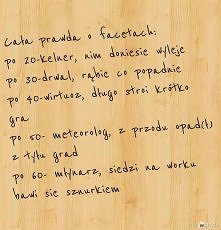 Cała prawda o facetach:
po 20-kelner, nim doniesie wyleje
po 30-drwal, rąbie co popadnie
po 40-wirtuoz, długo stroi krótko
gra
po 50- meteorolog, z przodu opad(ł)
z tyłu grad
po 60- młynarz, siedzi na worku
bawi się sznurkiem